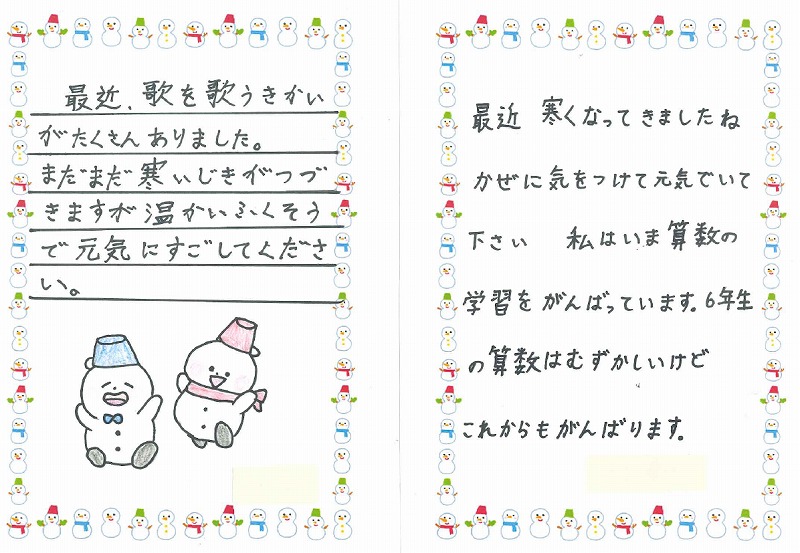 最近、歌を歌うきかい
がたくさんありました。
まだまだ寒いじきがつづ
きますが温かいふくそう
で元気にすごしてくださ
い。
最近 寒くなってきましたね
かぜに気をつけて元気でいて
下さい 私はいま算数の
学習をがんばっています。6年生
の算数はむずかしいけど
これからもがんばります。